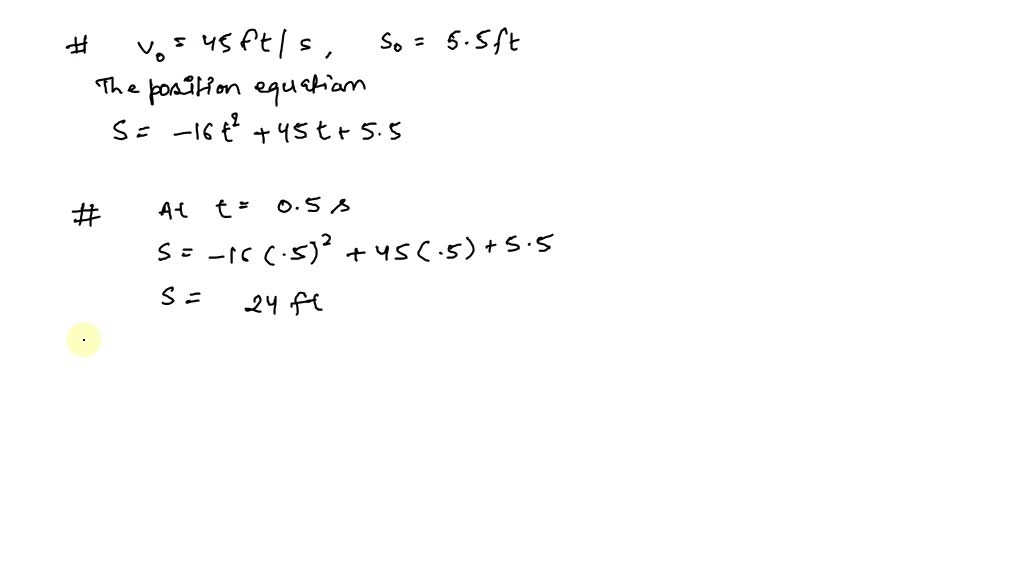 # v₀ = 45 ft/s, s₀ = 5.5ft
The position equation
S = -16t² + 45t + 5.5
# At t = 0.5 s
S = -16(.5)² + 45(.5) + 5.5
S = 24 ft